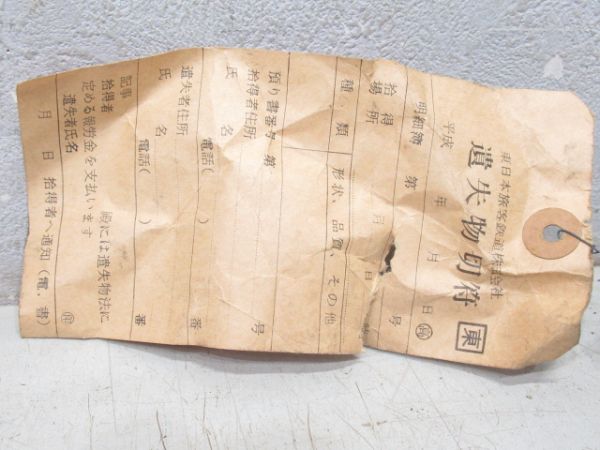 東日本旅客鉄道株式会社
遺失物切符 東
平成 年 月 日
明細簿 第 号
拾得場所 月 日
種類 形状、品質、その他
預り書番号 第 号
拾得者住所
氏名 電話( ) 番
遺失者住所
氏名 電話( ) 番
記事
拾得者 殿には遺失物法に
定める報労金を支払います
遺失者氏名
月 日 拾得者へ通知(電、書)